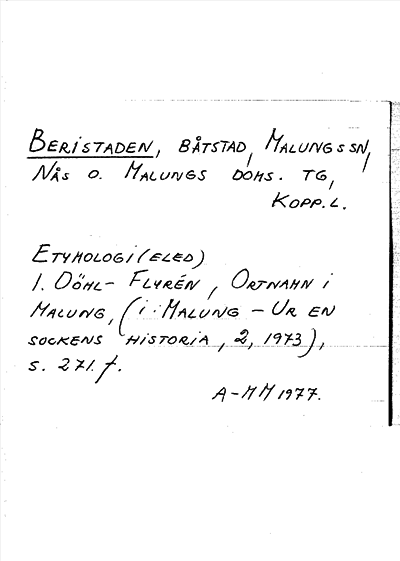 BERISTADEN, BÅTSTAD, MALUNGS SN,
NÅS O. MALUNGS DOMS. TG,
KOPP. L.
ETYMOLOGI (ELED)
I. DÖHL-FLYRÉN, ORTNAMN I
MALUNG, (I: MALUNG - UR EN
SOCKENS HISTORIA, 2, 1973),
S. 271 f.
A-MM 1977.